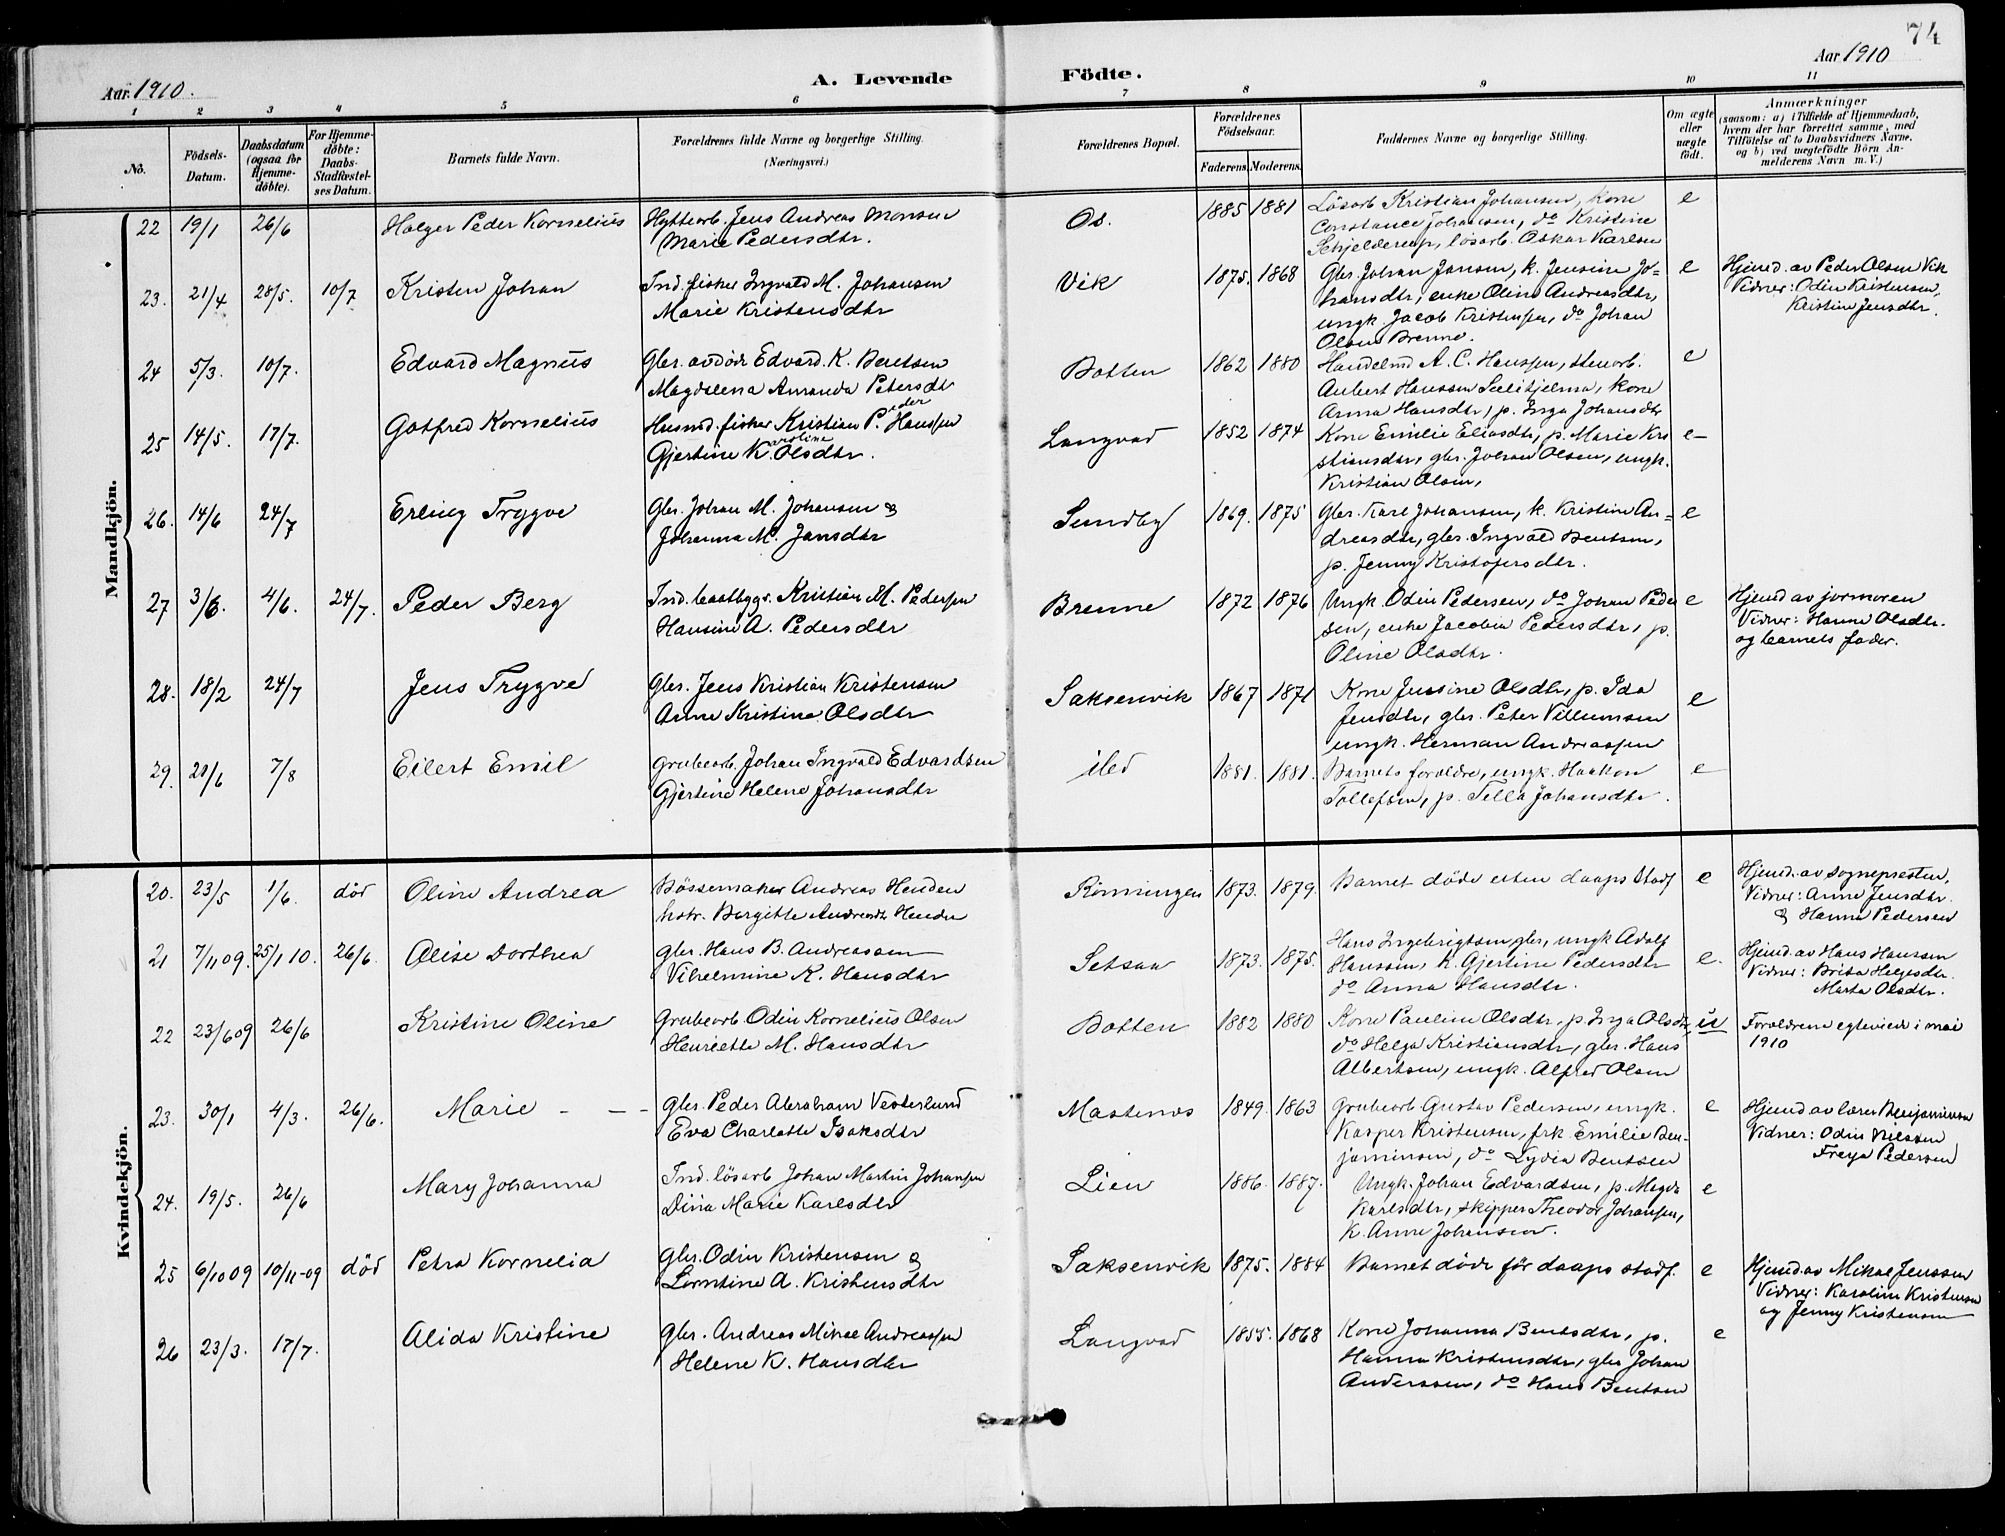 74
Aar 1910.
A. Levende Födte.
Aar 1910
1 2 3 4 5 6 7 8 9 10 11
No.
Födsels-Datum.
Daabsdatum (ogsaa for Hjemme-döbte).
For Hjemme-döbte: Daabs-Stadfæstel-ses Datum.
Barnets fulde Navn.
Forældrenes fulde Navne og borgerlige Stilling.
(Næringsvei.)
Forældrenes Bopæl.
Forældrenes Födselsaar.
Faderens. Moderens.
Faddernes Navne og borgerlige Stilling.
Om ægte eller uægte födt.
Anmærkninger
(saasom: a) i Tilfælde af Hjemmedaab,
hvem der har forrettet samme, med
Tilföielse af to Daabsvidners Navne,
og b) ved uægtefödte Börn An-
melderens Navn m. V.)
Mandkjön.
22 19/1 26/6 Holger Peder Kornelius
Hytterb. Jens Andreas Monsen
Marie Pedersdtr.
Os. 1885 1881
Lösarb Kristian Johansen, kone
Constance Johansen, do Kristine
Schjelderup, lösarb. Oskar Karlsen
e
23. 21/4 28/5. 10/7 Kristen Johan
Ind. fisker Ingvald M. Johansen
Marie Kristensdtr
Vik 1875. 1868
Gbr. Johan Jansen, k. Jensine Jo-
hansdtr, enke Oline Andreasdtr,
ungk. Jacob Kristensen, do Johan
Olsen Brenne.
e
Hjemd. av Peder Olsen Vik
Vidner: Odin Kristensen,
Kristine Jensdtr.
24 5/3. 10/7. Edvard Magnus
Gbr. avdöde Edvard K. Bentsen
Magdalena Amanda Petersdtr
Botten 1862 1880
Handelmd A. C. Hanssen, stenarb.
Anbert Hanssen Sulitjelma, kone
Anna Hansdtr, p. Inga Johansdtr
e
25 14/5. 17/7. Gotfred Kornelius
Husmd. fisker Kristian Peder Hanssen
Gjertine Karoline Olsdtr.
Langvad 1852 1874
Kone Emilie Eliasdtr, p. Marie Kri
stiansdtr, gbr. Johan Olsen, ungk.
Kristian Olsen,
e
26. 14/6 24/7 Erling Trygve
Gbr. Johan M. Johansen &
Johanna M. Jansdtr
Sundby 1869. 1875
Gbr. Karl Johansen, k. Kristine An-
dreasdtr, gbr. Ingvald Bentsen,
p. Jenny Kristofersdtr.
e
27 3/6. 4/6. 24/7. Peder Berg
Ind. baatbygs. Kristian M. Pedersen
Hansine A. Pedersdtr
Brenne 1872 1876
Ungk. Odin Pedersen, do Johan Peder
sen, enke Jacobia Pedersdtr, p.
Oline Olsdtr.
e
Hjemd av jormoren
Vidner: Hanne Olsdtr.
og barnets fader.
28. 18/2 24/7 Jens Trygve
Gbr. Jens Kristian Kristensen
Anne Kristine Olsdtr
Saksenvik 1867 1871
Kone Jensine Olsdtr, p. Ida
Jensdtr, gbr. Peter Villumsen
ungk. Herman Andreassen
e
29. 20/6 7/8 Eilert Emil
Grubearb. Johan Ingvald Edvardsen
Gjertine Helene Johansdtr
iled 1881. 1881.
Barnets forældre, ungk. Haakon
Tollefsen, p. Tella Johansdtr.
e
Kvindekjön.
20. 23/5 1/6. död Oline Andrea
Bössemaker Andreas Henden
hstr. Bergitte Andreasdtr Henden
Rönningen 1873. 1879.
Barnet döde uten daaps Stadf
e
Hjemd. av sogneprosten,
Vidner: Anne Jensdtr.
& Hanna Pedersen
21 7/11 09. 25/1 10. 26/6 Alise Dorthea
gbr. Hans B. Andreassen
Vilhelmine K. Hansdtr
Setsaa 1873. 1875.
Hans Ingebrigtsen gbr, ungk Adolf
Hanssen, k. Gjertine Pedersdtr
do Anna Hansdtr.
e.
Hjemd av Hans Hanssen
Vidner: Brita Helgesdtr.
Marta Olsdtr.
22 23/6 09 26/6 Kristine Oline
Grubearb. Odin Kornelius Olsen
Henriette M. Hansdtr
Botten 1882 1880
Kone Pauline Olsdtr, p. Inga Olsdtr,
do Helga Kristiansdtr, gbr. Hans
Albertsen, ungk. Alfred Olsen
u
Forældrene egteviede i mai
1910
23. 30/1 4/3. 26/6. Marie - - -
Gbr. Peder Abraham Vesterlund
Eva Charlotte Isaksdtr
Mastenos 1849. 1863
Grubearb Gustav Pedersen, ungk.
Kasper Kristensen, frk. Emilie Ben-
jaminsen, do Lydia Bentsen
e
Hjemd av lærer Benjaminsen
Vidner: Odin Nilssen
Freya Pedersen
24. 19/5. 26/6 Mary Johanna
Ind. lösarb Johan Martin Johansen
Dina Marie Karlsdtr
Lien 1886. 1887.
Ungk. Johan Edvardsen, p. Magda
Karlsdtr, skipper Theodor Johansen,
k. Anne Johansen.
e
25 6/10 09 10/11-09 död Petra Kornelia
Gbr. Odin Kristensen &
Lorntine A. Kristensdtr
Saksenvik 1875. 1884
Barnet döde för daaps stadf.
e
Hjemd av Mikal Jenssen
Vidner: Karoline Kristensen
og Jenny Kristensen
26 23/3. 17/7. Alida Kristine
Gbr. Andreas Mikal Andreassen
Helene K. Hansdtr
Langvad 1855. 1868
Kone Johanna Bentsdtr, p.
Hanna Kristensdtr, gbr Johan
Anderssen, do Hans Bentsen
e